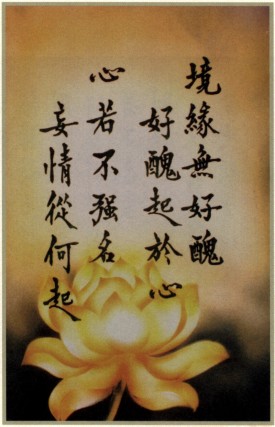 境緣無好醜
好醜起於心
心若不强名
妄情從何起